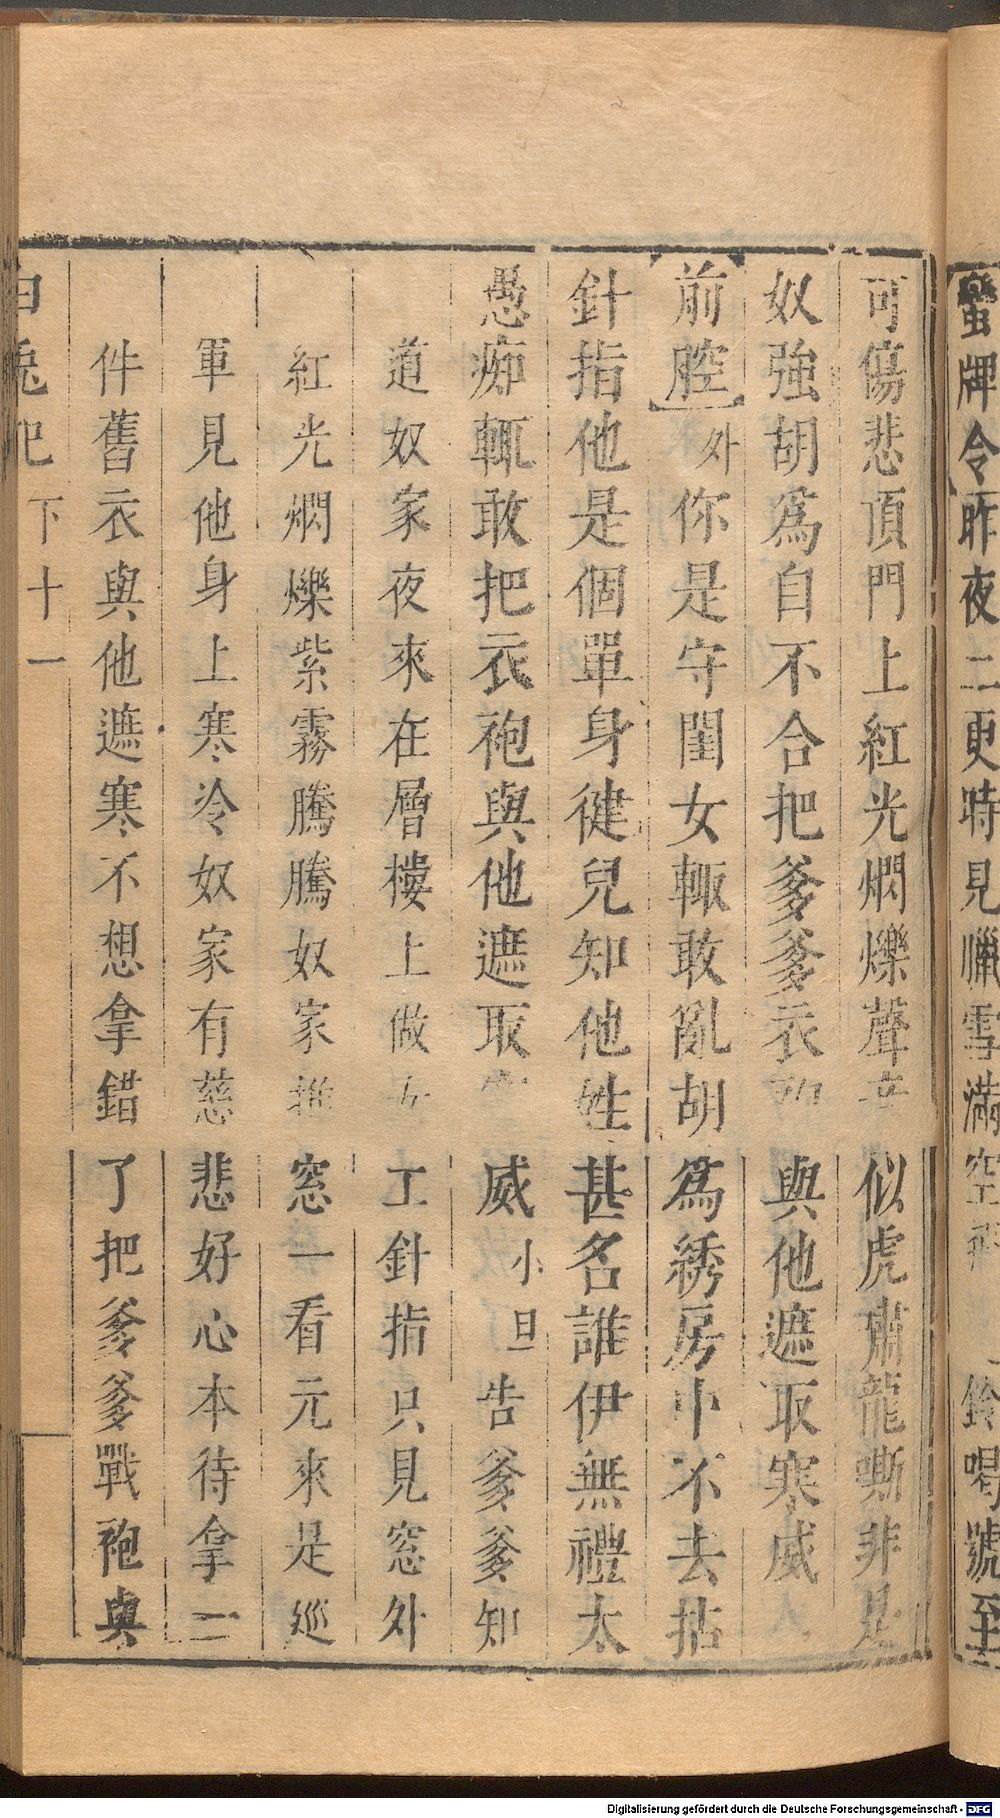 蠻牌令昨夜二更時見臘雪滿空飛鈴喝號至
可傷悲頂門上紅光燗爍聲似虎肅龍嘶非是
奴強胡爲自不合把爹爹衣與他遮取寒威
前腔外你是守閨女輙敢亂胡爲綉房中不去拈
針指他是個單身健兒知他姓甚名誰伊無禮太
愚痴輒敢把衣袍與他遮取威小旦告爹爹知
道奴家夜來在層樓上做工針指只見窓外
紅光燗爍紫霧騰騰奴家窓一看元來是巡
軍見他身上寒冷奴家有慈悲好心本待拿一
件舊衣與他遮寒不想拿錯了把爹爹戰袍與
白兎記下十一
Digitalisierung gefördert durch die Deutsche Forschungsgemeinschaft - DFG